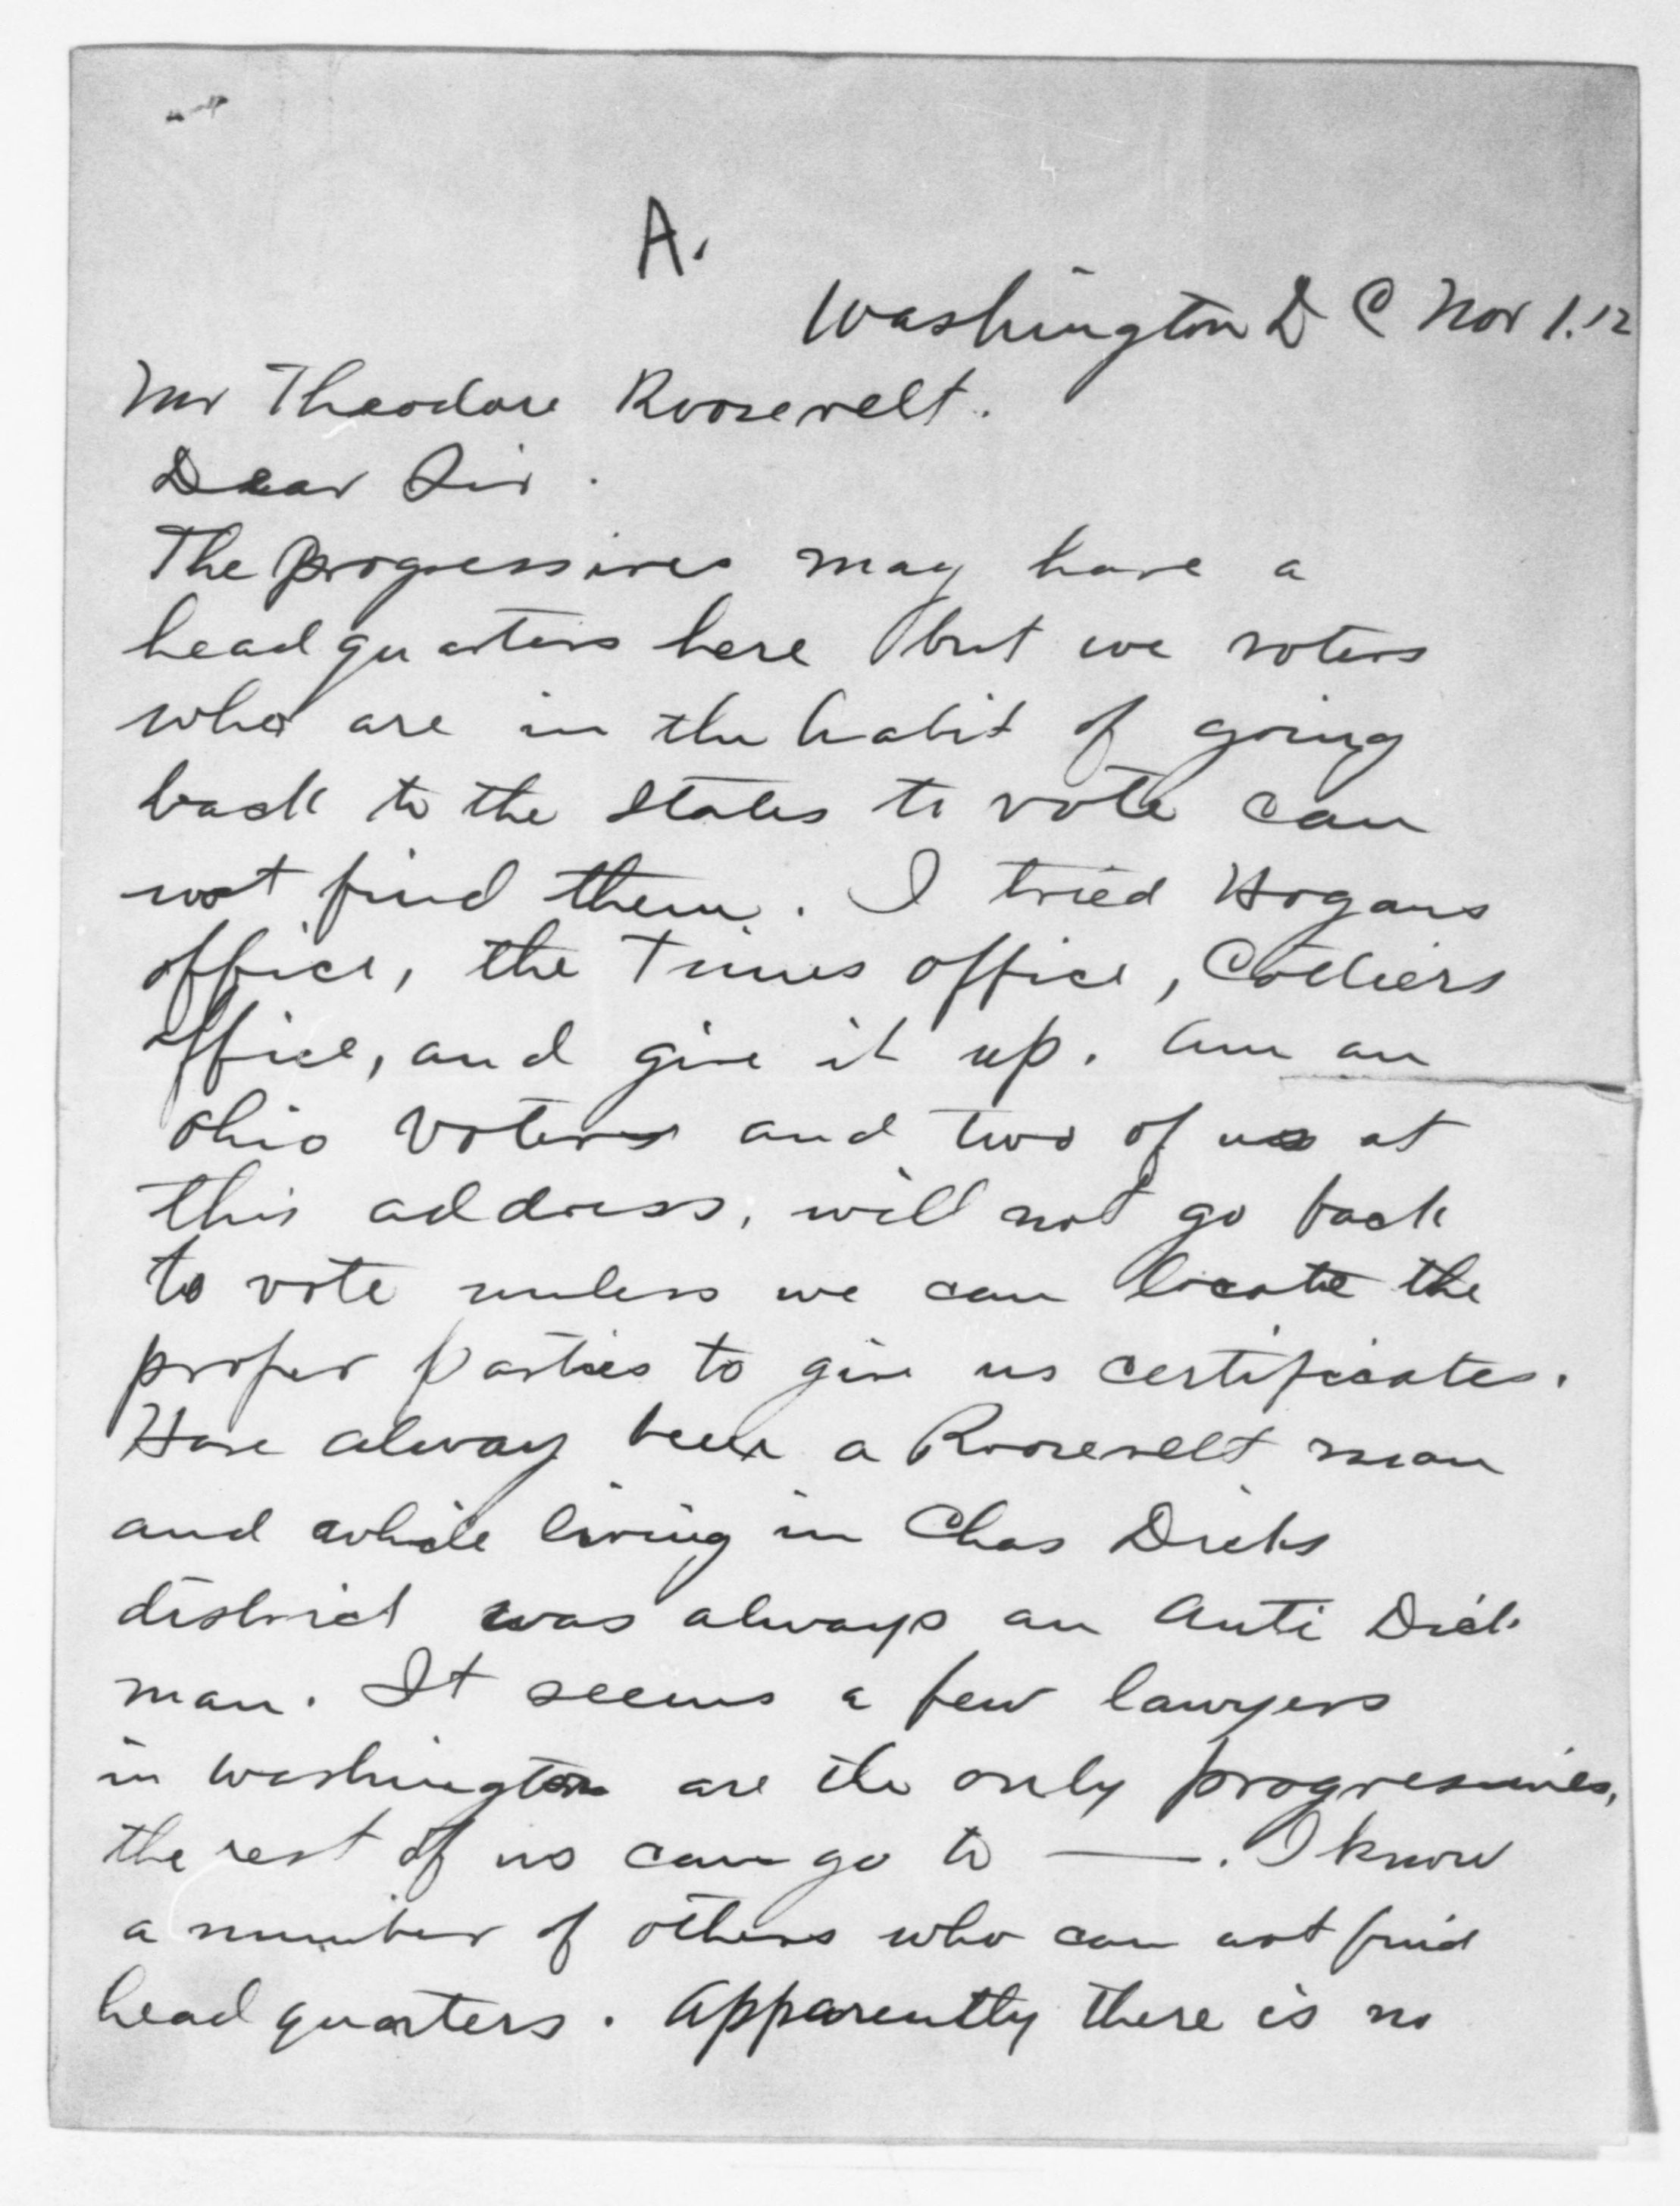 A.
Washington D C Nov 1.12
Mr Theodore Roosevelt.
Dear Sir.
The progressives may have a
headquarters here but we voters
who are in the habit of going
back to the States to vote can
not find them. I tried Hogans
office, the Times office, Colliers
office, and give it up. Am an
Ohio voter and two of us at
this address, will not go back
to vote unless we can locate the
proper parties to give us certificates.
Have alway been a Roosevelt man
and while living in Chas Dicks
district was always an Anti Dick
man. It seems a few lawyers
in Washington are the only progressives,
the rest of us can go to —. I know
a number of others who can not find
headquarters. Apparently there is no